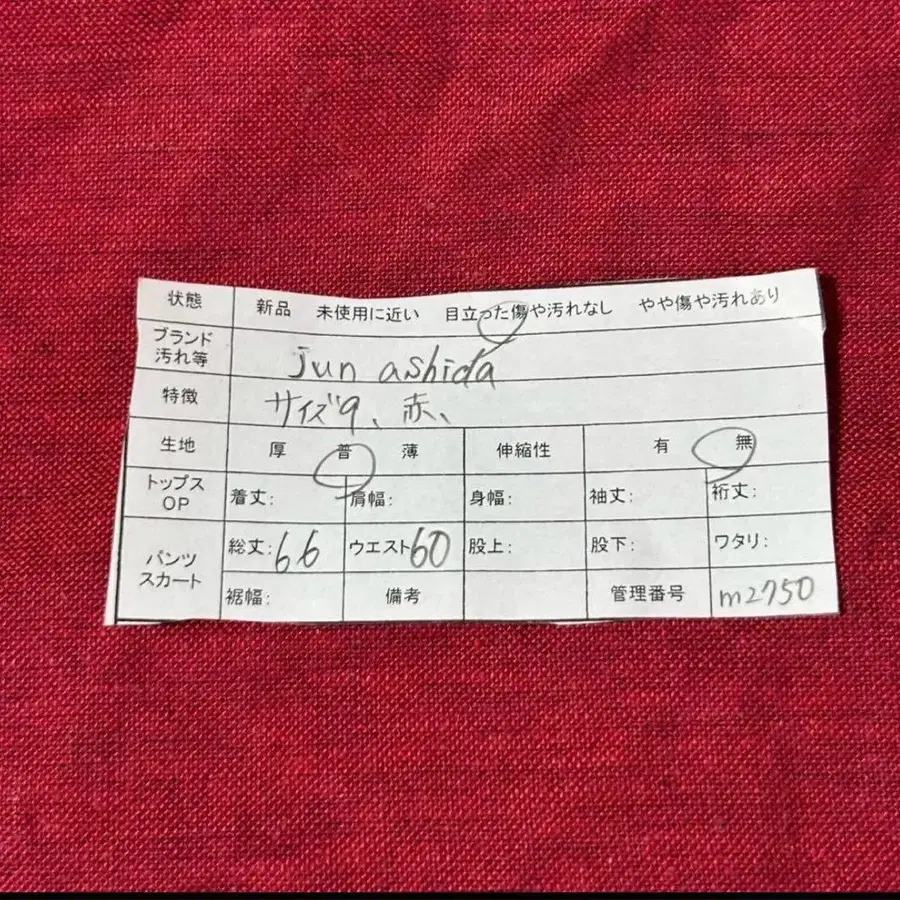 状態 新品 未使用に近い 目立った傷や汚れなし やや傷や汚れあり
ブランド
汚れ等 jun ashida
特徴 サイズ9、赤、
生地 厚 普 薄 伸縮性 有 無
トップス
OP 着丈: 肩幅: 身幅: 袖丈: 裄丈:
パンツ
スカート 総丈:66 ウエスト60 股上: 股下: ワタリ:
裾幅: 備考 管理番号 m2750